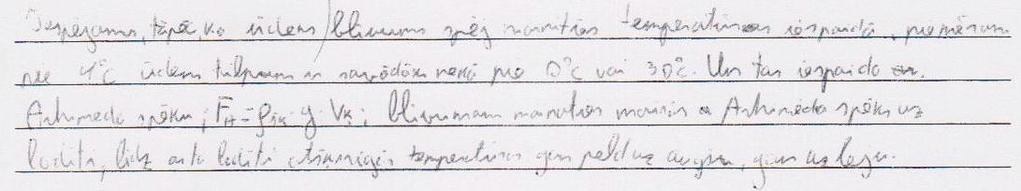 Iespējams, tāpēc, ka ūdens blīvums spēj mainīties temperatūras iespaidā, piemēram
pie 4°C ūdens tilpums ir savādāks nekā pie 0°C vai 30°C. Un tas iespaido
Arhimēda spēku; F_A = ρ_šķ · g · V_ķ; blīvumam mainoties mainās Arhimēda spēks uz
lodīti, līdz ar to lodīti atšķirīgās temperatūrās gan peld uz augšu, gan uz leju.